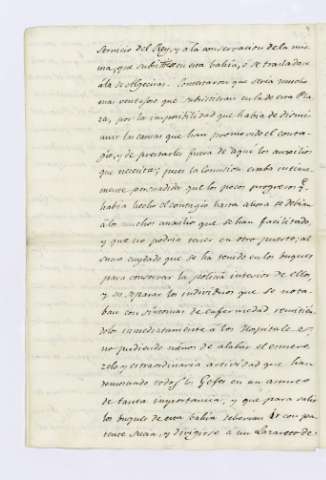 servicio del Rey, y á la conservacion de la mis-
ma, que subsistiese en esta bahía, ó se trasladase
á la de Algeciras. Contestaron que sería mucho
mas ventajoso que subsistiesen en la de esta Pla-
za, por la imposibilidad que había de dismi-
nuir las causas que han promovido el conta-
gio, y de prestarles fuera de aquí los auxilios
que necesita; pues la Comision estaba intima-
mente persuadida que los pocos progresos q.e
había hecho el contagio hasta ahora se debian
á los muchos auxilios que se han facilitado,
y que no podria tener en otro puerto; al
sumo cuydado que se ha tenido en los buques
para conservar la policia interior de ellos,
y de separar los individuos que se nota-
ban con síntomas de enfermedad remitien-
dolos inmediatamente á los Hospitales. Y
no pudiendo menos de alabar el esmero,
zelo y extraordinaria actividad que han
demostrado todos los Gefes en un asunto
de tanta importancia; y que para salir
los buques de esta bahía deberian ir con pa-
tente sucia, y dirigirse á un Lazareto de